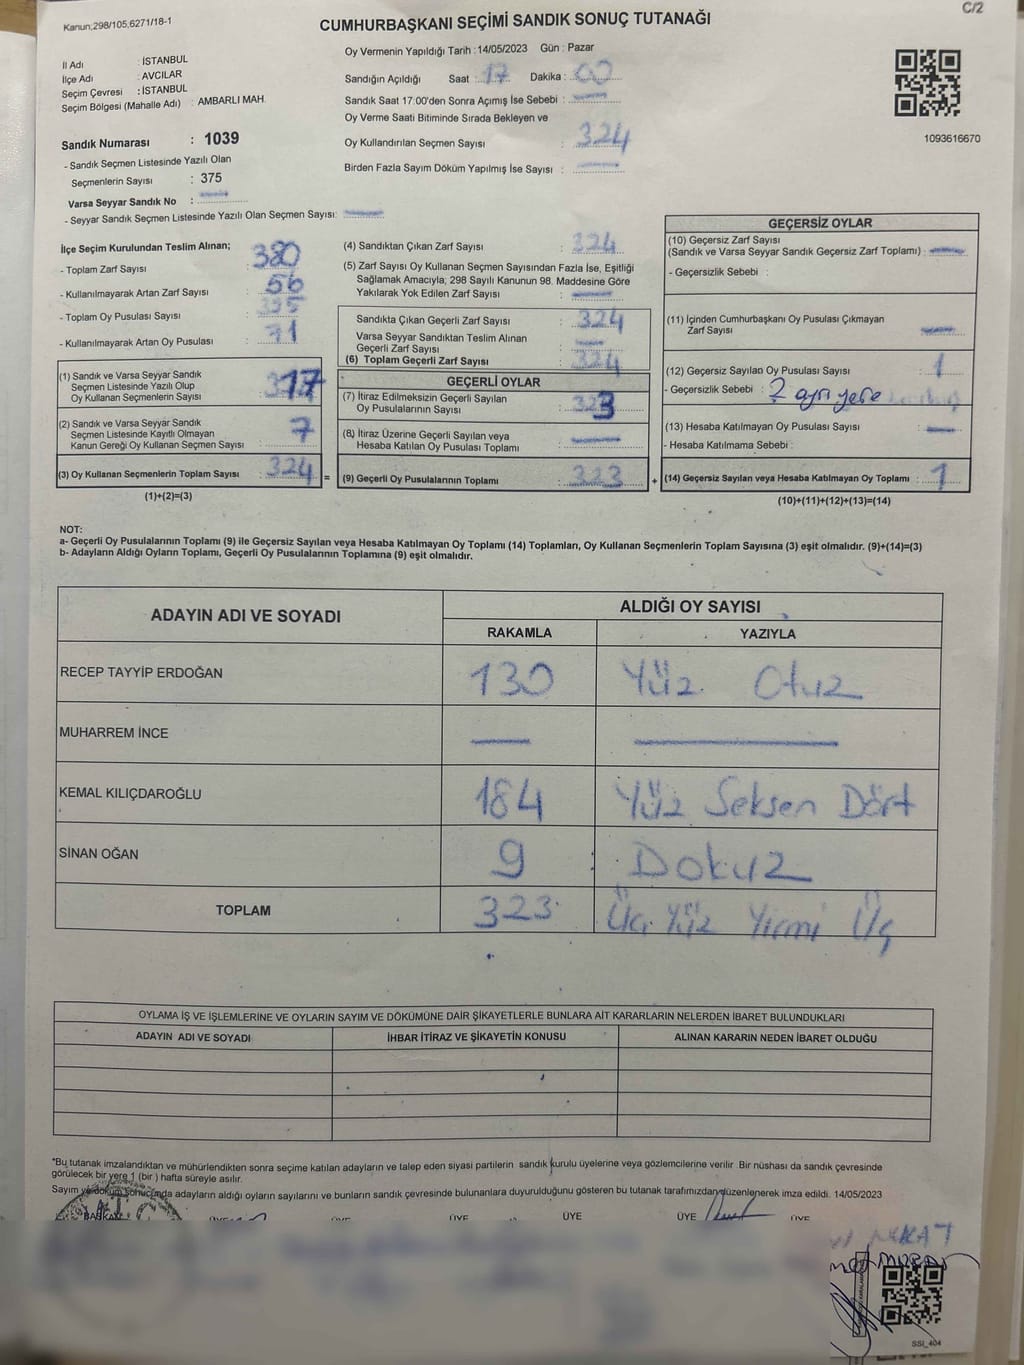 Kanun;298/105,6271/18-1
C/2
CUMHURBAŞKANI SEÇİMİ SANDIK SONUÇ TUTANAĞI
İl Adı : İSTANBUL
İlçe Adı : AVCILAR
Seçim Çevresi : İSTANBUL
Seçim Bölgesi (Mahalle Adı) : AMBARLI MAH.
Sandık Numarası : 1039
- Sandık Seçmen Listesinde Yazılı Olan
Seçmenlerin Sayısı : 375
Varsa Seyyar Sandık No :
- Seyyar Sandık Seçmen Listesinde Yazılı Olan Seçmen Sayısı:
Oy Vermenin Yapıldığı Tarih :14/05/2023 Gün : Pazar
Sandığın Açıldığı Saat : 17 Dakika : 00
Sandık Saat 17:00'den Sonra Açımış İse Sebebi :
Oy Verme Saati Bitiminde Sırada Bekleyen ve
Oy Kullandırılan Seçmen Sayısı : 324
Birden Fazla Sayım Döküm Yapılmış İse Sayısı :
1093616670
İlçe Seçim Kurulundan Teslim Alınan;
- Toplam Zarf Sayısı : 380
- Kullanılmayarak Artan Zarf Sayısı : 56
- Toplam Oy Pusulası Sayısı : 395
- Kullanılmayarak Artan Oy Pusulası : 71
(1) Sandık ve Varsa Seyyar Sandık
Seçmen Listesinde Yazılı Olup
Oy Kullanan Seçmenlerin Sayısı : 317
(2) Sandık ve Varsa Seyyar Sandık
Seçmen Listesinde Kayıtlı Olmayan
Kanun Gereği Oy Kullanan Seçmen Sayısı : 7
(3) Oy Kullanan Seçmenlerin Toplam Sayısı : 324 =
(1)+(2)=(3)
(4) Sandıktan Çıkan Zarf Sayısı : 324
(5) Zarf Sayısı Oy Kullanan Seçmen Sayısından Fazla İse, Eşitliği
Sağlamak Amacıyla; 298 Sayılı Kanunun 98. Maddesine Göre
Yakılarak Yok Edilen Zarf Sayısı :
Sandıkta Çıkan Geçerli Zarf Sayısı : 324
Varsa Seyyar Sandıktan Teslim Alınan
Geçerli Zarf Sayısı :
(6) Toplam Geçerli Zarf Sayısı : 324
GEÇERLİ OYLAR
(7) İtiraz Edilmeksizin Geçerli Sayılan
Oy Pusulalarının Sayısı : 323
(8) İtiraz Üzerine Geçerli Sayılan veya
Hesaba Katılan Oy Pusulası Toplamı :
(9) Geçerli Oy Pusulalarının Toplamı : 323 +
GEÇERSİZ OYLAR
(10) Geçersiz Zarf Sayısı
(Sandık ve Varsa Seyyar Sandık Geçersiz Zarf Toplamı) :
- Geçersizlik Sebebi :
(11) İçinden Cumhurbaşkanı Oy Pusulası Çıkmayan
Zarf Sayısı :
(12) Geçersiz Sayılan Oy Pusulası Sayısı : 1
- Geçersizlik Sebebi : 2 ayrı yere
(13) Hesaba Katılmayan Oy Pusulası Sayısı :
- Hesaba Katılmama Sebebi :
(14) Geçersiz Sayılan veya Hesaba Katılmayan Oy Toplamı : 1
(10)+(11)+(12)+(13)=(14)
NOT:
a- Geçerli Oy Pusulalarının Toplamı (9) ile Geçersiz Sayılan veya Hesaba Katılmayan Oy Toplamı (14) Toplamları, Oy Kullanan Seçmenlerin Toplam Sayısına (3) eşit olmalıdır. (9)+(14)=(3)
b- Adayların Aldığı Oyların Toplamı, Geçerli Oy Pusulalarının Toplamına (9) eşit olmalıdır.
ADAYIN ADI VE SOYADI ALDIĞI OY SAYISI
RAKAMLA YAZIYLA
RECEP TAYYİP ERDOĞAN 130 Yüz Otuz
MUHARREM İNCE
KEMAL KILIÇDAROĞLU 184 Yüz Seksen Dört
SİNAN OĞAN 9 Dokuz
TOPLAM 323 Üç Yüz Yirmi Üç
OYLAMA İŞ VE İŞLEMLERİNE VE OYLARIN SAYIM VE DÖKÜMÜNE DAİR ŞİKAYETLERLE BUNLARA AİT KARARLARIN NELERDEN İBARET BULUNDUKLARI
ADAYIN ADI VE SOYADI İHBAR İTİRAZ VE ŞİKAYETİN KONUSU ALINAN KARARIN NEDEN İBARET OLDUĞU
"Bu tutanak imzalandıktan ve mühürlendikten sonra seçime katılan adayların ve talep eden siyasi partilerin sandık kurulu üyelerine veya gözlemcilerine verilir. Bir nüshası da sandık çevresinde
görülecek bir yere 1 (bir) hafta süreyle asılır.
Sayım ve döküm sonucunda adayların aldığı oyların sayılarını ve bunların sandık çevresinde bulunanlara duyurulduğunu gösteren bu tutanak tarafımızdan düzenlenerek imza edildi. 14/05/2023
BAŞKAN ÜYE ÜYE ÜYE ÜYE ÜYE ÜYE
SSI_404